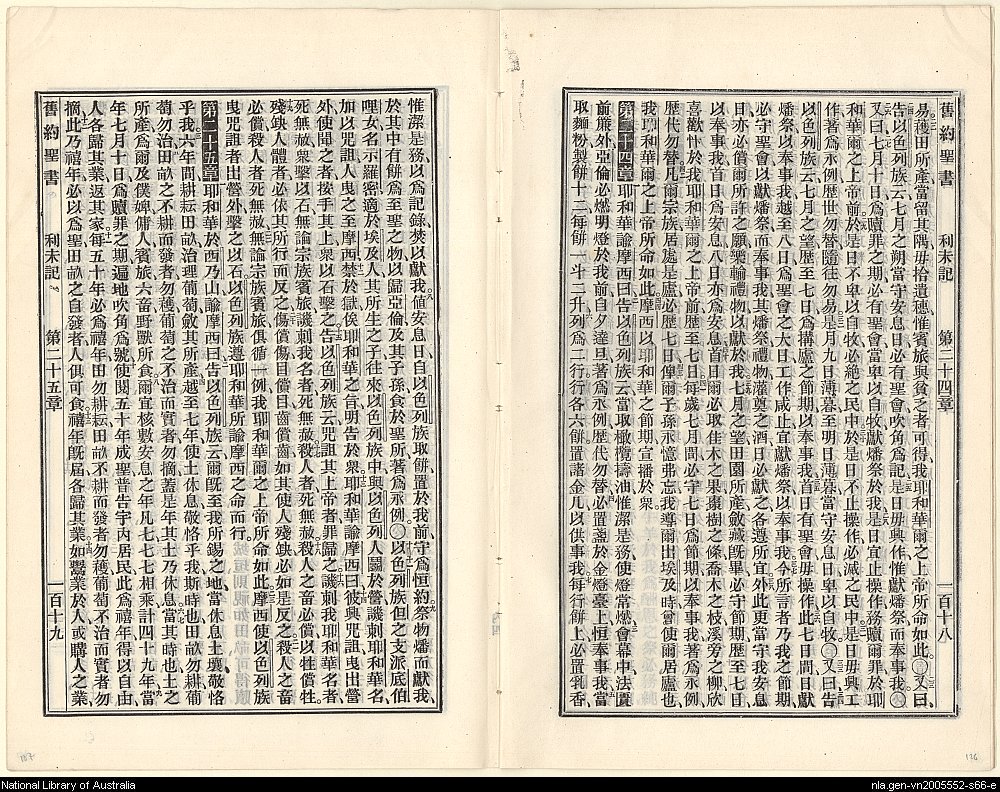 舊約聖書 利未記 第二十四章 一百十八
易穫田所產當留其隅毋拾遺穗惟賓旅與貧乏者可得我耶和華爾之上帝所命如此。○又曰
告以色列族云七月之朔當守安息日必有聖會吹角爲記是日毋興作惟獻燔祭而奉事我○
又曰七月十日爲贖罪之期必有聖會當卑以自牧獻燔祭於我是日宜止操作務贖爾罪於耶
和華爾之上帝前於是日不卑以自牧必絕之民中於是日不止操作必滅之民中是日毋興工
作著爲永例歷世勿替隨往勿易是月九日薄暮至明日薄暮當守安息日卑以自牧○又曰告
以色列族云七月之望歷至七日爲搆廬之節期以奉事我首日有聖會毋操作此七日間日獻
燔祭以奉事我越至八日爲聖會之大日工作咸止宜獻燔祭以奉事我今所言者乃我之節期
必守聖會以獻燔祭而奉事我其燔祭禮物灌奠之酒日必獻之各遵所宜外此更當守我安息
日亦必償所許之願樂輸禮物以獻於我七月之望田園所產斂藏旣畢必守節期歷至七日
以奉事我首日爲安息八日亦爲安息首日爾必取佳木之果棗樹之條喬木之枝溪旁之柳欣
喜歡忭於我耶和華爾之上帝前歷至七日每歲七月間必守七日爲節期以奉事我著爲永例
歷代勿替凡爾宗族居處是廬必歷七日俾爾子孫永憶弗忘我導爾出埃及時曾使爾居廬也
我耶和華爾之上帝所命如此摩西以耶和華之節期宣播於衆。
第二十四章耶和華諭摩西曰告以色列族云當取橄欖擣油惟潔是務使燈常燃會幕中法匱
前簾外亞倫必燃明燈於我前自夕達旦著爲永例歷代勿替必置盞於金燈臺上恒奉事我當
取麵粉製餅十二每餅一斗二升列爲二行行各六餅置諸金几以供事我每行餅上必置乳香
惟潔是務以爲記錄焚以獻我値安息日自以色列族取餅置於我前守爲恒約祭物燔而獻我
於其中有餅爲至聖之物以歸亞倫及其子孫食於聖所著爲永例○以色列族但之支派底伯
哩女名示羅密適於埃及人其所生之子往來以色列族中與以色列人鬬於營譏刺耶和華名
加以咒詛人曳之至摩西禁於獄俟耶和華之旨明告於衆耶和華諭摩西曰彼興咒詛曳出營
外使聞之者按手其上衆以石擊之告以色列族云咒詛其上帝者罪歸之譏刺我耶和華名者
死無赦衆擊以石無論宗族賓旅譏刺我名者死無赦殺人者死無赦殺人之畜必償以牲償牲
殘缺人體者必依其所行而反之傷償傷目償目齒償齒如其使人殘缺必如是反之殺人之畜
必償殺人者死無赦無論宗族賓旅俱循一例我耶和華爾之上帝所命如此摩西使以色列族
曳咒詛者出營外擊之以石以色列族遵耶和華所諭摩西之命而行。
第二十五章耶和華於西乃山諭摩西曰告以色列族云爾旣至我所錫之地當休息土壤敬恪
乎我六年間耕耘田畝治理葡萄斂其所產越至七年使土休息敬恪乎我斯時也田畝勿耕葡
萄勿治田畝之不耕而發者勿穫葡萄之不治而實者勿摘蓋是年其土乃休息當其時也土之
所產爲爾及僕婢傭人賓旅六畜野獸所食爾宜核數安息之年凡七七七相乘計四十九年當
年七月十日爲贖罪之期遍地吹角爲號使閱五十年成聖普告宇內居民此爲禧年得以自由
人各歸其業返其家每五十年必爲禧年田勿耕耘田畝不耕而發者勿穫葡萄不治而實者勿
摘此乃禧年必以爲聖田畝之自發者人俱可食禧年旣屆各歸其業如鬻業於人或購人之業
舊約聖書 利未記 第二十五章 一百十九
187
186
National Library of Australia
nla.gen-vn2005552-s66-e